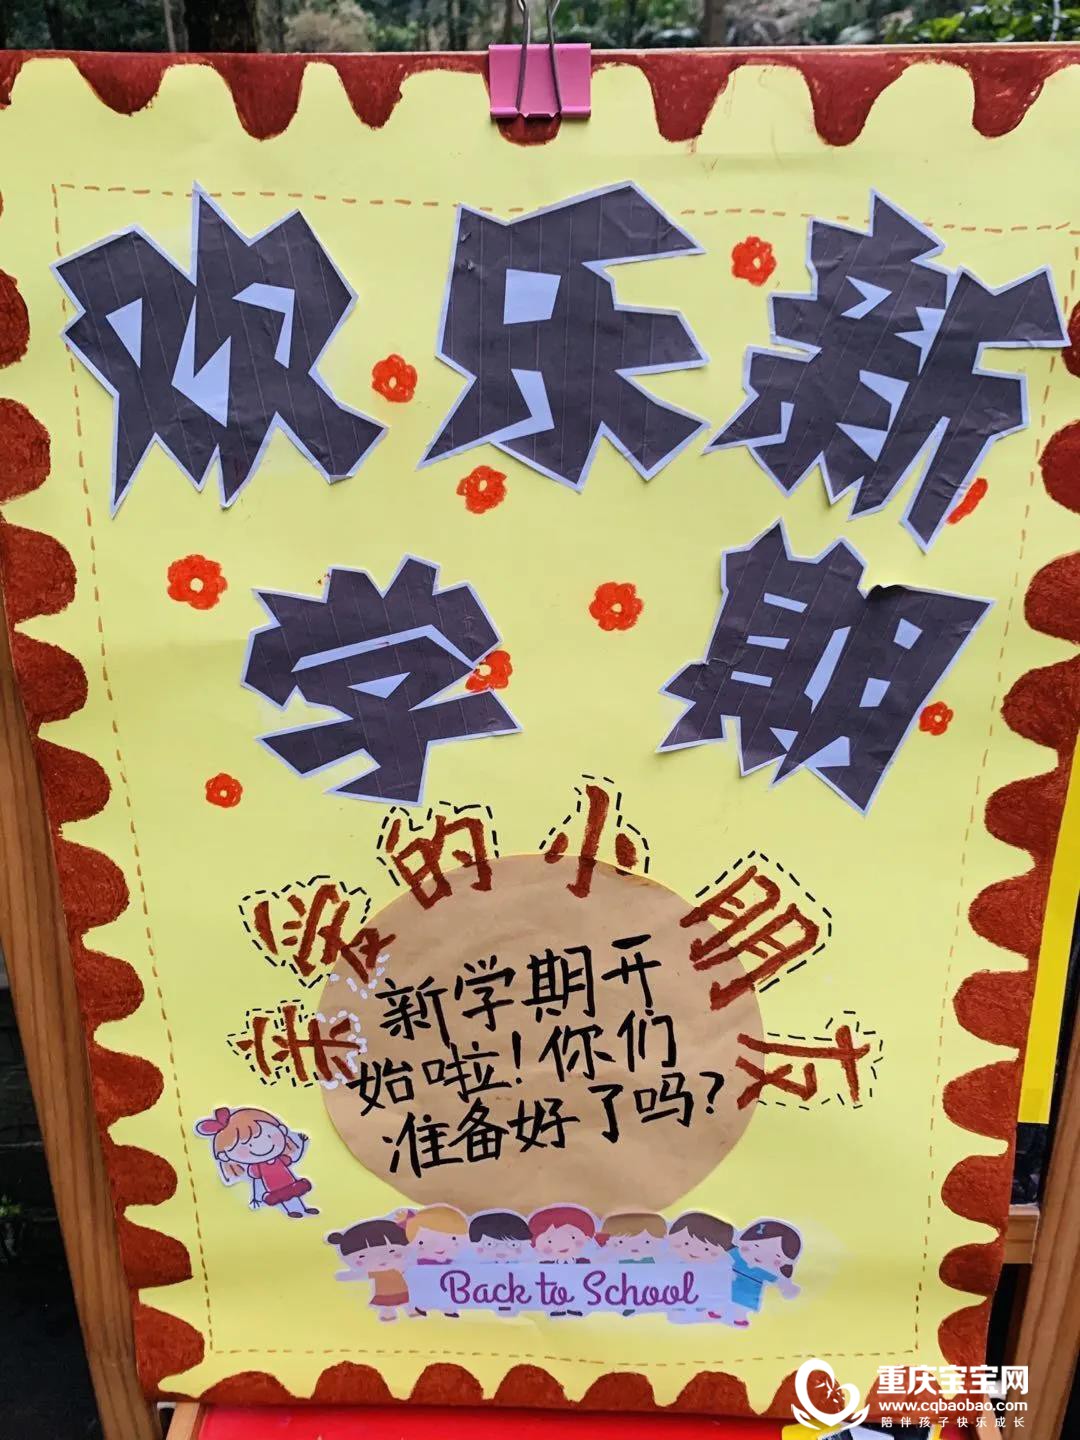 欢乐新
学期
亲爱的小朋友
新学期开
始啦!你们
准备好了吗?
Back to School
重庆宝宝网
www.cqbaobao.com
陪伴孩子快乐成长